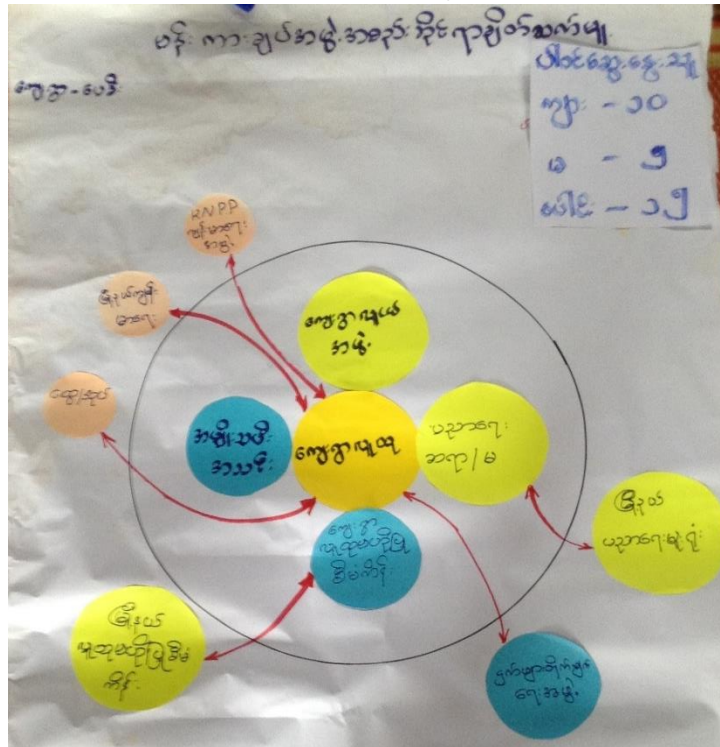 ပန်းကားချပ်အဖွဲ့အစည်းဆိုင်ရာချိတ်ဆက်မှု
ကျေးရွာ - ပေဒီး
ပါဝင်ဆွေးနွေးသူ
ကျား - ၁၀
မ - ၅
ပေါင်း - ၁၅
KNPP
ကျန်းမာရေး
အဖွဲ့
မြို့နယ်ကျန်း
မာရေး
ကျေးရွာလူငယ်
အဖွဲ့
ထွေ/အုပ်
အမျိုးသမီး
အသင်း
ကျေးရွာလူထု
ပညာရေး
ဆရာ/မ
ကျေးရွာ
လူထုဗဟိုပြု
စီမံကိန်း
မြို့နယ်
ပညာရေးမှူးရုံး
မြို့နယ်
လူထုဗဟိုပြုစီမံ
ကိန်း
ငှက်ဖျားတိုက်ဖျက်
ရေးအဖွဲ့